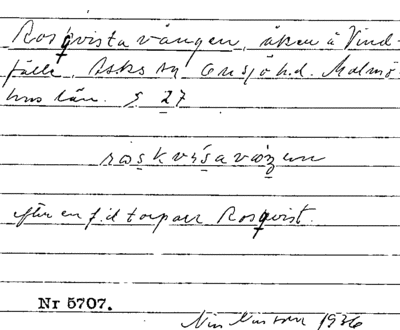 Rosqvista vången, åker å Vind-
fälle, Asks sn Onsjö h.d. Malmö-
hus län. § 27
efter en f.d. torpare Rosqvist.
Nr 5707.
Nils Nilsson 1936